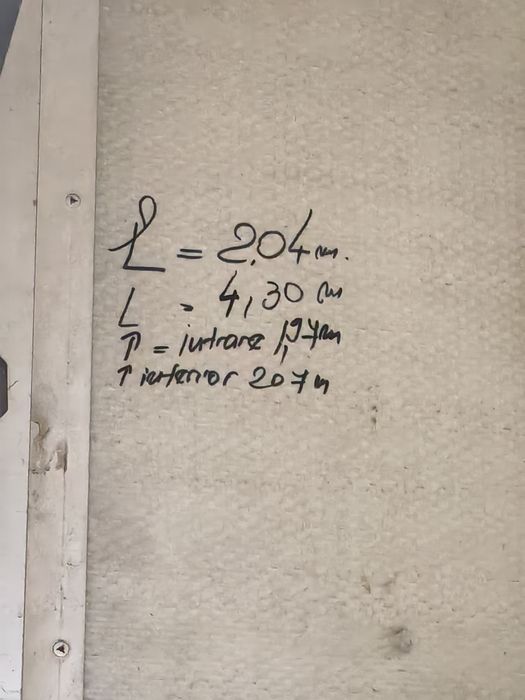 L = 2,04 m.
L = 4,30 m
↑ = intrare 1,97m
↑ interior 207m